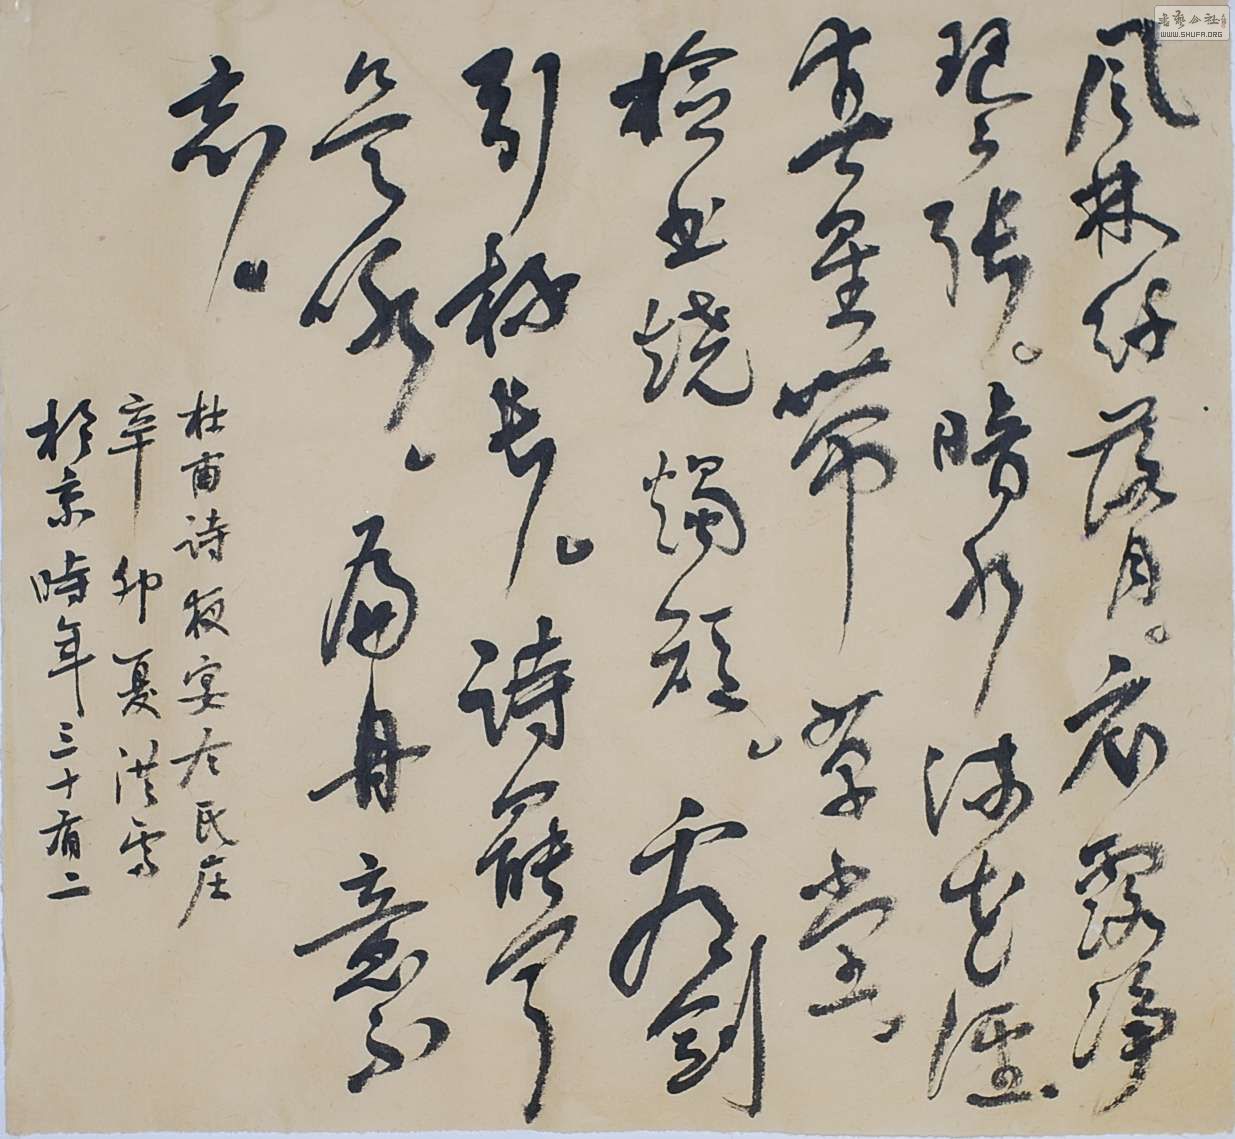 風林纤落月。衣露淨
琴張。暗水流花徑
春星帶草堂。
檢書燒燭短。看劍
引杯長。詩罷聞
吳咏。扁舟意不
忘。
杜甫詩夜宴左氏庄
辛卯夏洪
於京時年三十有二
書藝公社
WWW.SHUFA.ORG